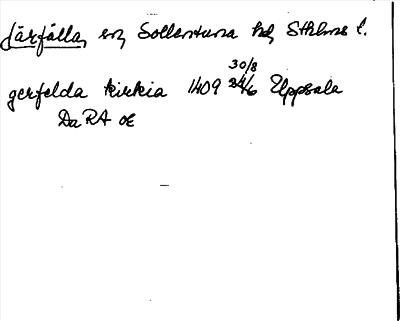 Järfälla sn, Sollentuna hd, Sthlms l.
30/8
gerfelda kirkia 1409 24/6 Uppsala
Da RA oe